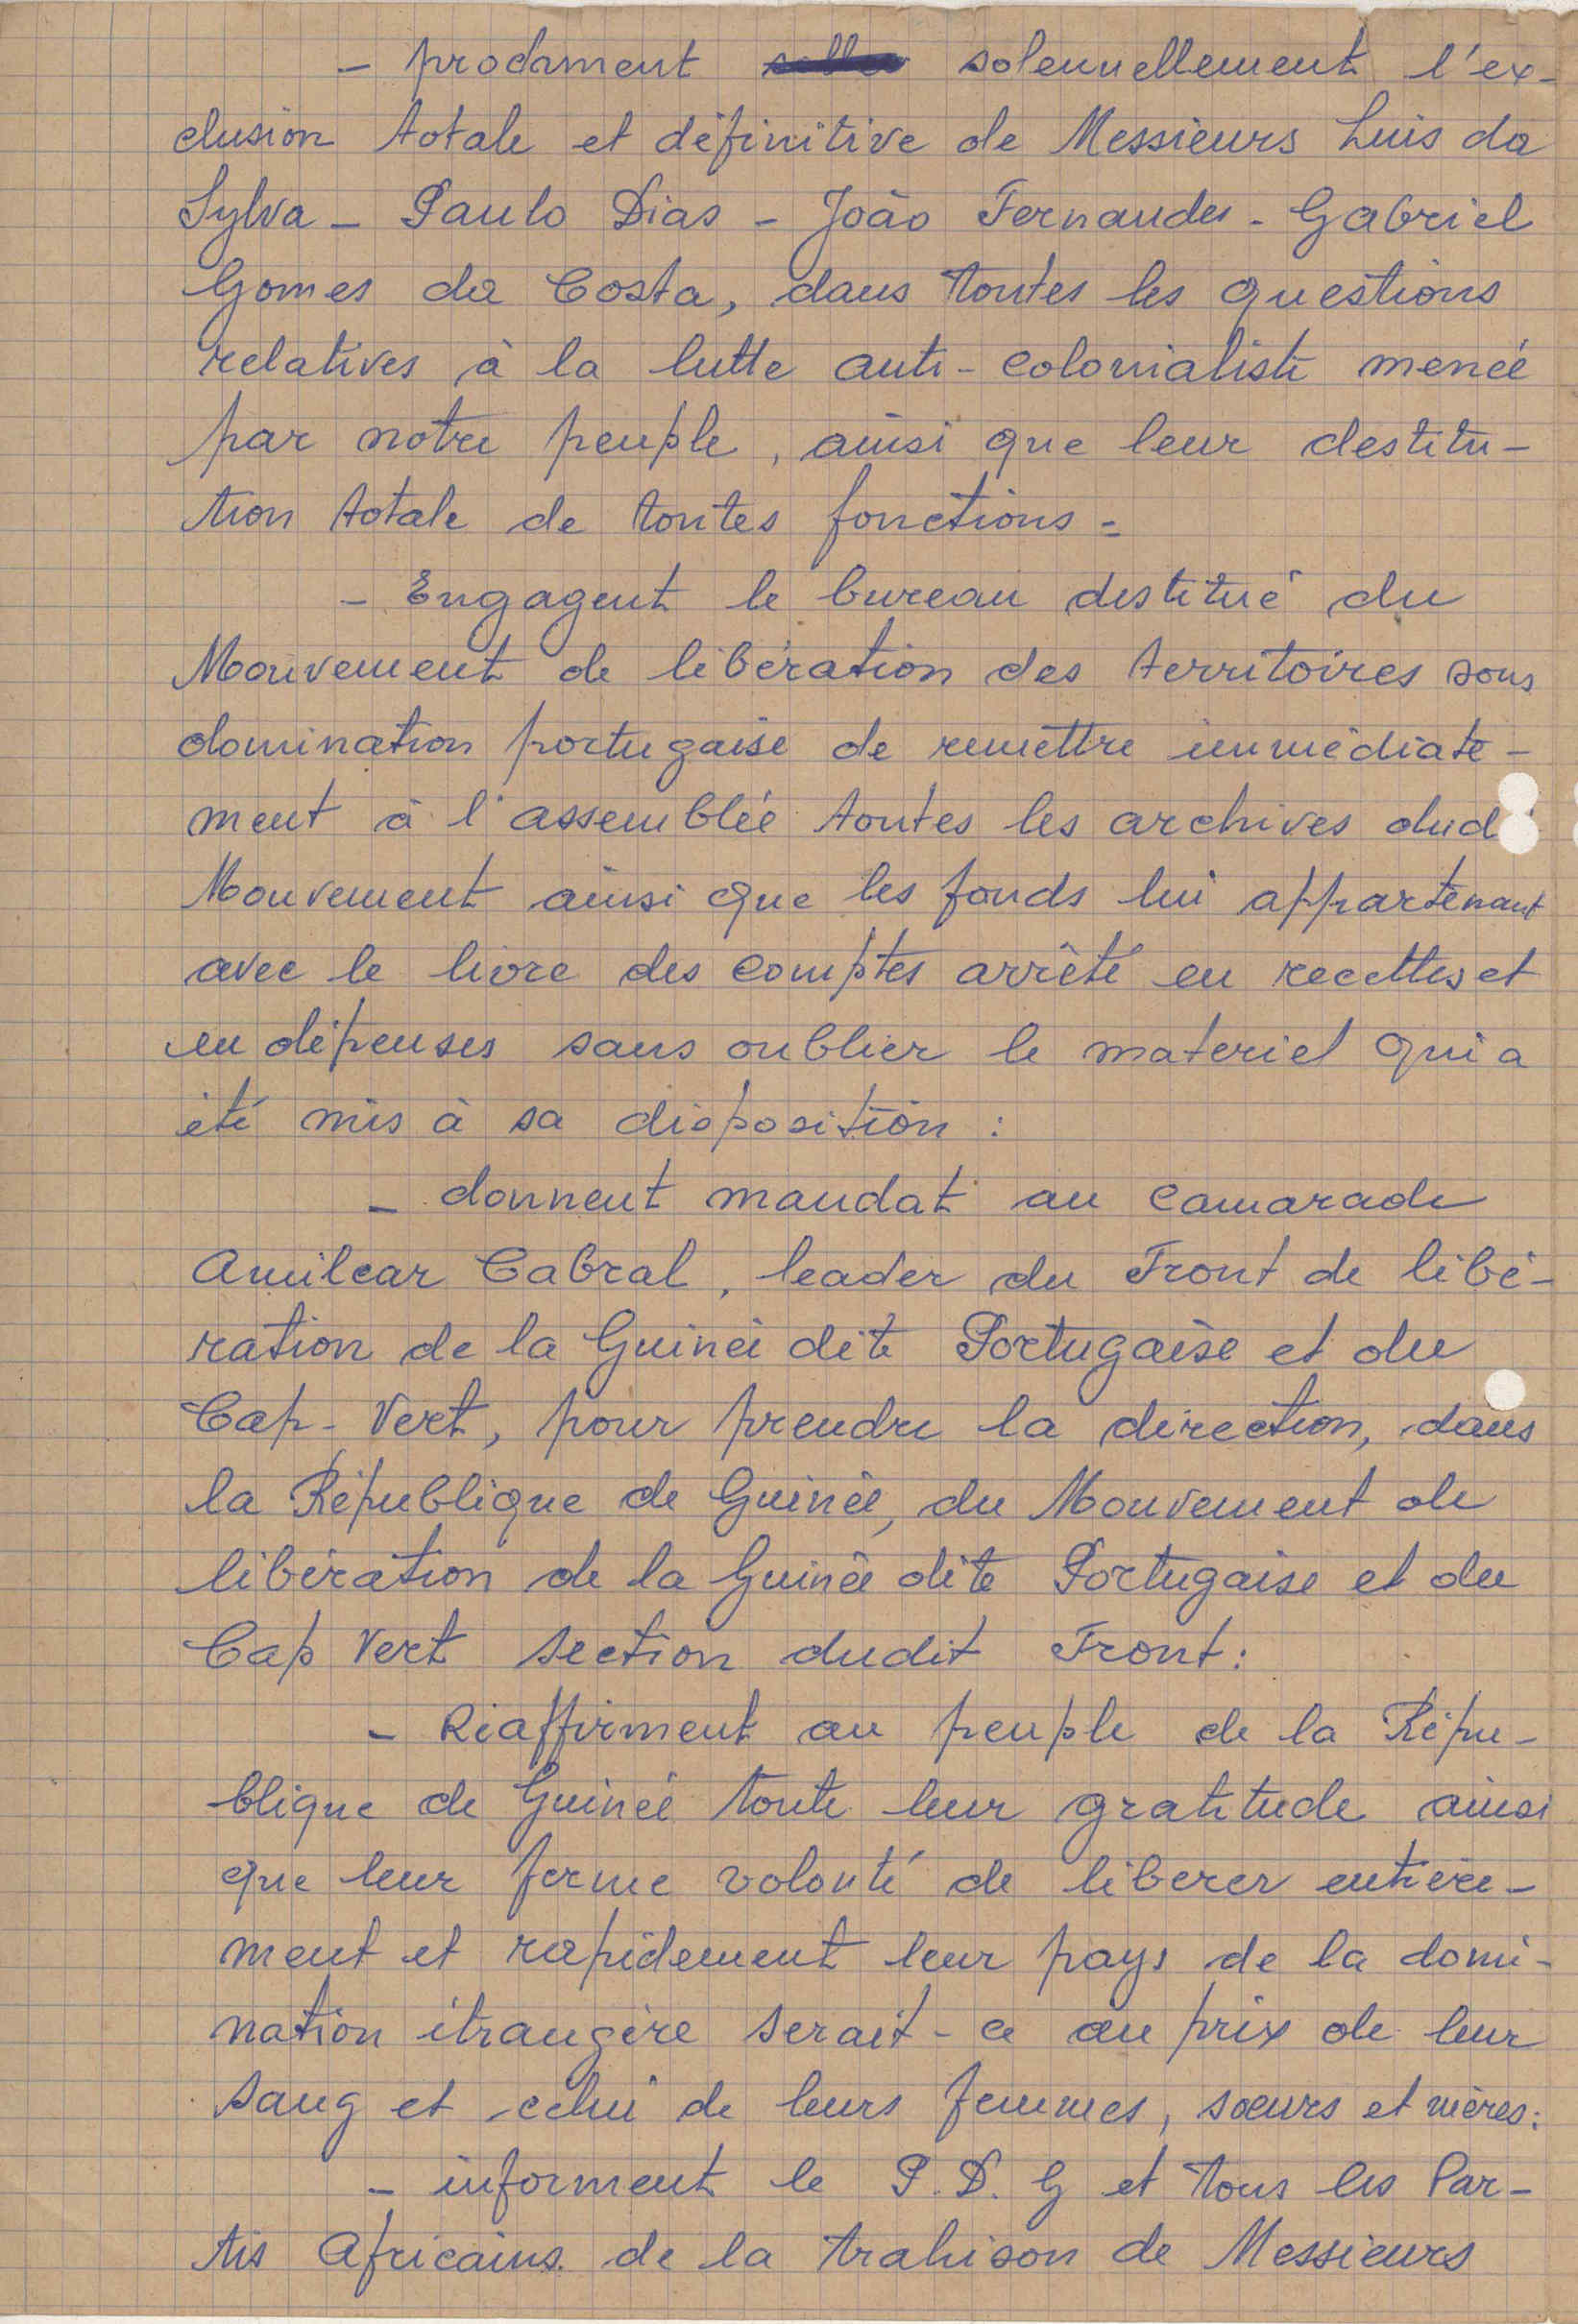 - proclament solennellement l'ex-
clusion totale et définitive de Messieurs Luis da
Sylva - Paulo Dias - João Fernandes - Gabriel
Gomes da Costa, dans toutes les questions
relatives à la lutte anti-colonialiste menée
par notre peuple, ainsi que leur destitu-
tion totale de toutes fonctions =
- Engagent le bureau destitué du
Mouvement de libération des territoires sous
domination portugaise de remettre immédiate-
ment à l'assemblée toutes les archives dud
Mouvement ainsi que les fonds lui appartenant
avec le livre des comptes arrêté en recettes et
en dépenses sans oublier le materiel qui a
été mis à sa disposition :
- donnent mandat au camarade
Amilcar Cabral, leader du Front de libé-
ration de la Guinée dite Portugaise et du
Cap-Vert, pour prendre la direction, dans
la République de Guinée, du Mouvement de
libération de la Guinée dite Portugaise et du
Cap Vert section dudit Front :
- Réaffirment au peuple de la Répu-
blique de Guinée toute leur gratitude ainsi
que leur ferme volonté de liberer entière-
ment et rapidement leur pays de la domi-
nation étrangère serait-ce au prix de leur
sang et celui de leurs femmes, sœurs et mères :
- informent le P.D.G et tous les Par-
tis Africains de la trahison de Messieurs